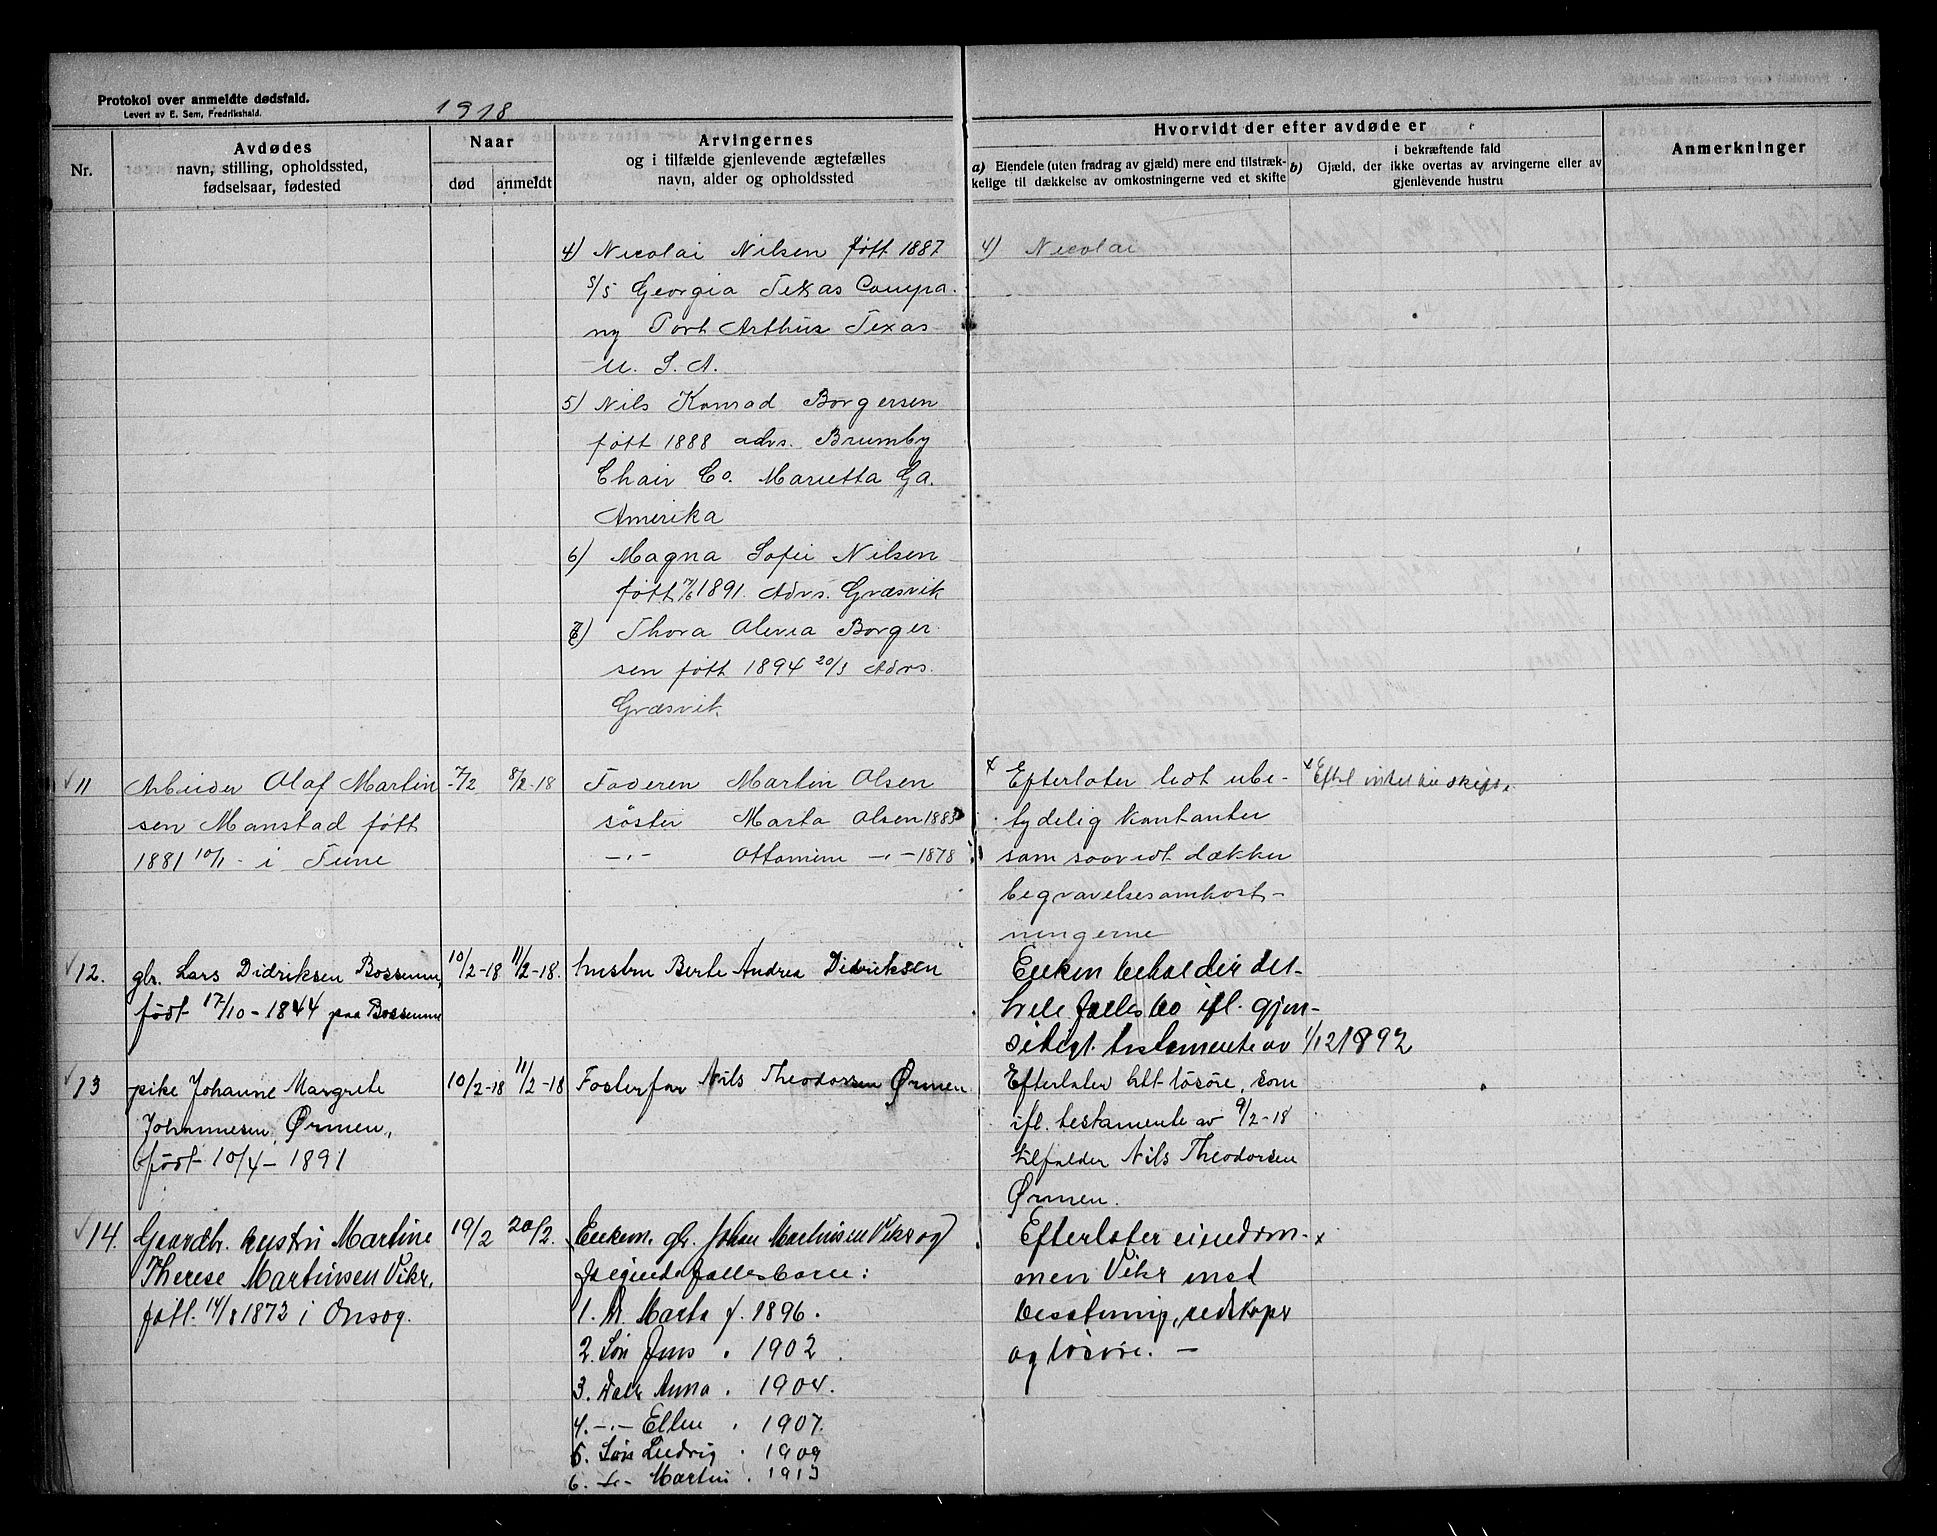 Protokol over anmeldte dødsfald.
Levert av E. Sem, Fredrikshald.
1918
Nr.
Avdødes
navn, stilling, opholdssted,
fødselsaar, fødested
Naar
død
anmeldt
Arvingernes
og i tilfælde gjenlevende ægtefælles
navn, alder og opholdssted
Hvorvidt der efter avdøde er
a) Eiendele (uten fradrag av gjæld) mere end tilstræk-
kelige til dækkelse av omkostningerne ved et skifte
i bekræftende fald
b) Gjæld, der ikke overtas av arvingerne eller av
gjenlevende hustru
Anmerkninger
4) Nicolai Nilsen født 1887
S/S Georgia Texas Compa-
ny Port Arthur Texas
U. S. A.
4) Nicolai
5) Nils Konrad Borgersen
født 1888 adrs. Brumby
Chair Co. Marietta Ga.
Amerika
6) Magna Sofie Nilsen
født 1891. Adrs. Græsvik
7) Thora Olevia Borger-
sen født 1894 20/3 Adrs.
Græsvik
11
Arbeider Olaf Martin
sen Manstad født
1881 10/1 - i Tune
7/2
8/2-18
Faderen Martin Olsen
søster Marta Olsen 1883
-"- Ottomine -"- 1878
x Efterlater lidt ube-
tydelig kontanter
som saavidt dækker
begravelsesomkost-
ningerne
x
12.
gbr. Lars Didriksen Bossum,
født 17/10 - 1844 paa Bossum
10/2-18
11/2-18.
hustru Berte Andrea Didriksen
Enken beholder det
hele fællesbo ifl. gjen-
sidigt testamente av 1/12 1892
13
pike Johanne Margrete
Johannesen, Ørmen,
født 10/4 - 1891
10/2-18
11/2-18
Fosterfar Nils Theodorsen Ørmen
Efterlater litt løsøre, som
ifl. testamente av 9/2-18
tilfalder Nils Theodorsen
Ørmen.
14.
Gaardbr. hustru Martine
Therese Martinsen Vikr,
født. 14/8 1873 i Onsøy.
19/2
20/2.
Enkem. gbr. Johan Martinsen Vikr og
følgende fællesbarn:
1. D. Marta f. 1896.
2. Søn Jens " 1902.
3. Datr Anna " 1904.
4. -"- Ellen " 1907.
5. Søn Ludvig " 1909
6. -"- Martin " 1913
Efterlater eiendom-
men Vikr med
besetning, redskaper
og løsøre. -
x